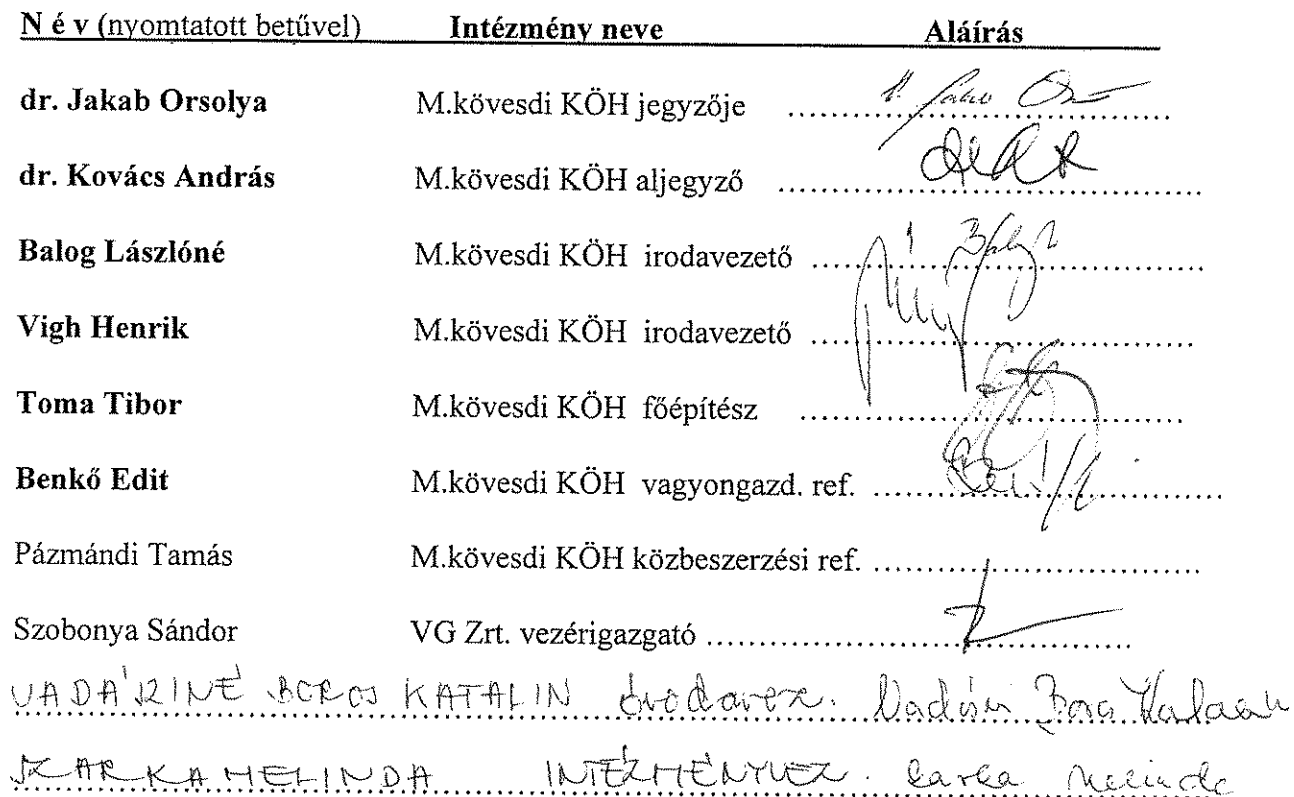 N é v (nyomtatott betűvel) Intézmény neve Aláírás
dr. Jakab Orsolya M.kövesdi KÖH jegyzője ..............................
dr. Kovács András M.kövesdi KÖH aljegyző ..............................
Balog Lászlóné M.kövesdi KÖH irodavezető ..............................
Vigh Henrik M.kövesdi KÖH irodavezető ..............................
Toma Tibor M.kövesdi KÖH főépítész ..............................
Benkő Edit M.kövesdi KÖH vagyongazd. ref. ..............................
Pázmándi Tamás M.kövesdi KÖH közbeszerzési ref. ..............................
Szobonya Sándor VG Zrt. vezérigazgató ..............................
VADÁSZINÉ BOROS KATALIN óvodavez.
SZARKA MELINDA INTÉZMÉNYVEZ.